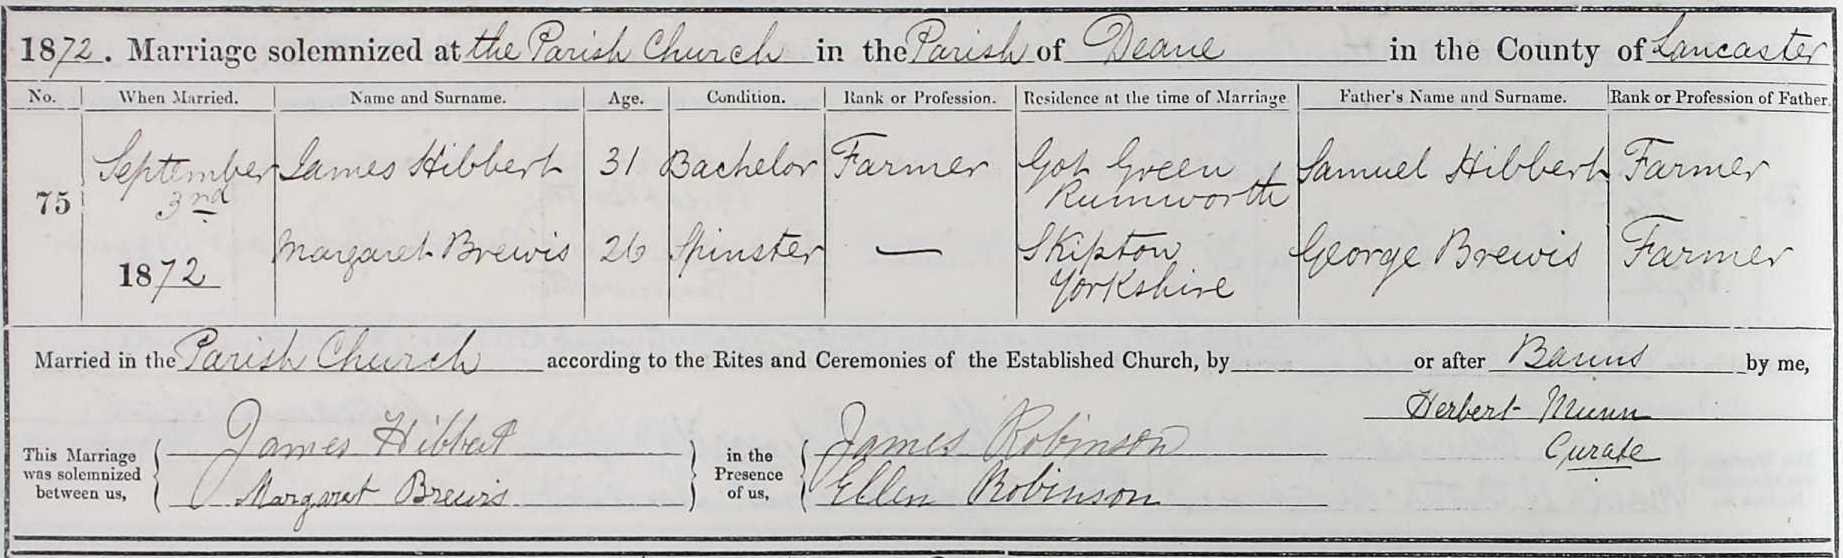 1872. Marriage solemnized at the Parish Church in the Parish of Deane in the County of Lancaster
No. When Married. Name and Surname. Age. Condition. Rank or Profession. Residence at the time of Marriage Father's Name and Surname. Rank or Profession of Father.
75 September 3rd 1872
James Hibbert 31 Bachelor Farmer Got Green Rumworth Samuel Hibbert Farmer
Margaret Brewis 26 Spinster — Skipton Yorkshire George Brewis Farmer
Married in the Parish Church according to the Rites and Ceremonies of the Established Church, by or after Banns by me,
Herbert Munn
Curate
This Marriage was solemnized between us,
James Hibbert
Margaret Brewis
in the Presence of us,
James Robinson
Ellen Robinson